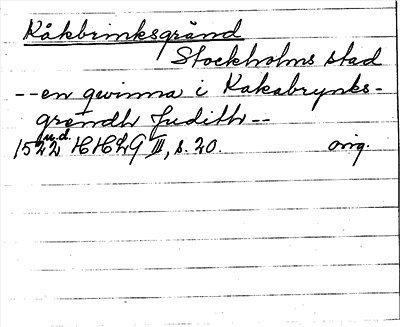 Kåkbrinksgränd
Stockholms stad
--en qwinna i Kakabrynks-
grendh Judith--
1522 u.d. HH29 III, s. 20. orig.